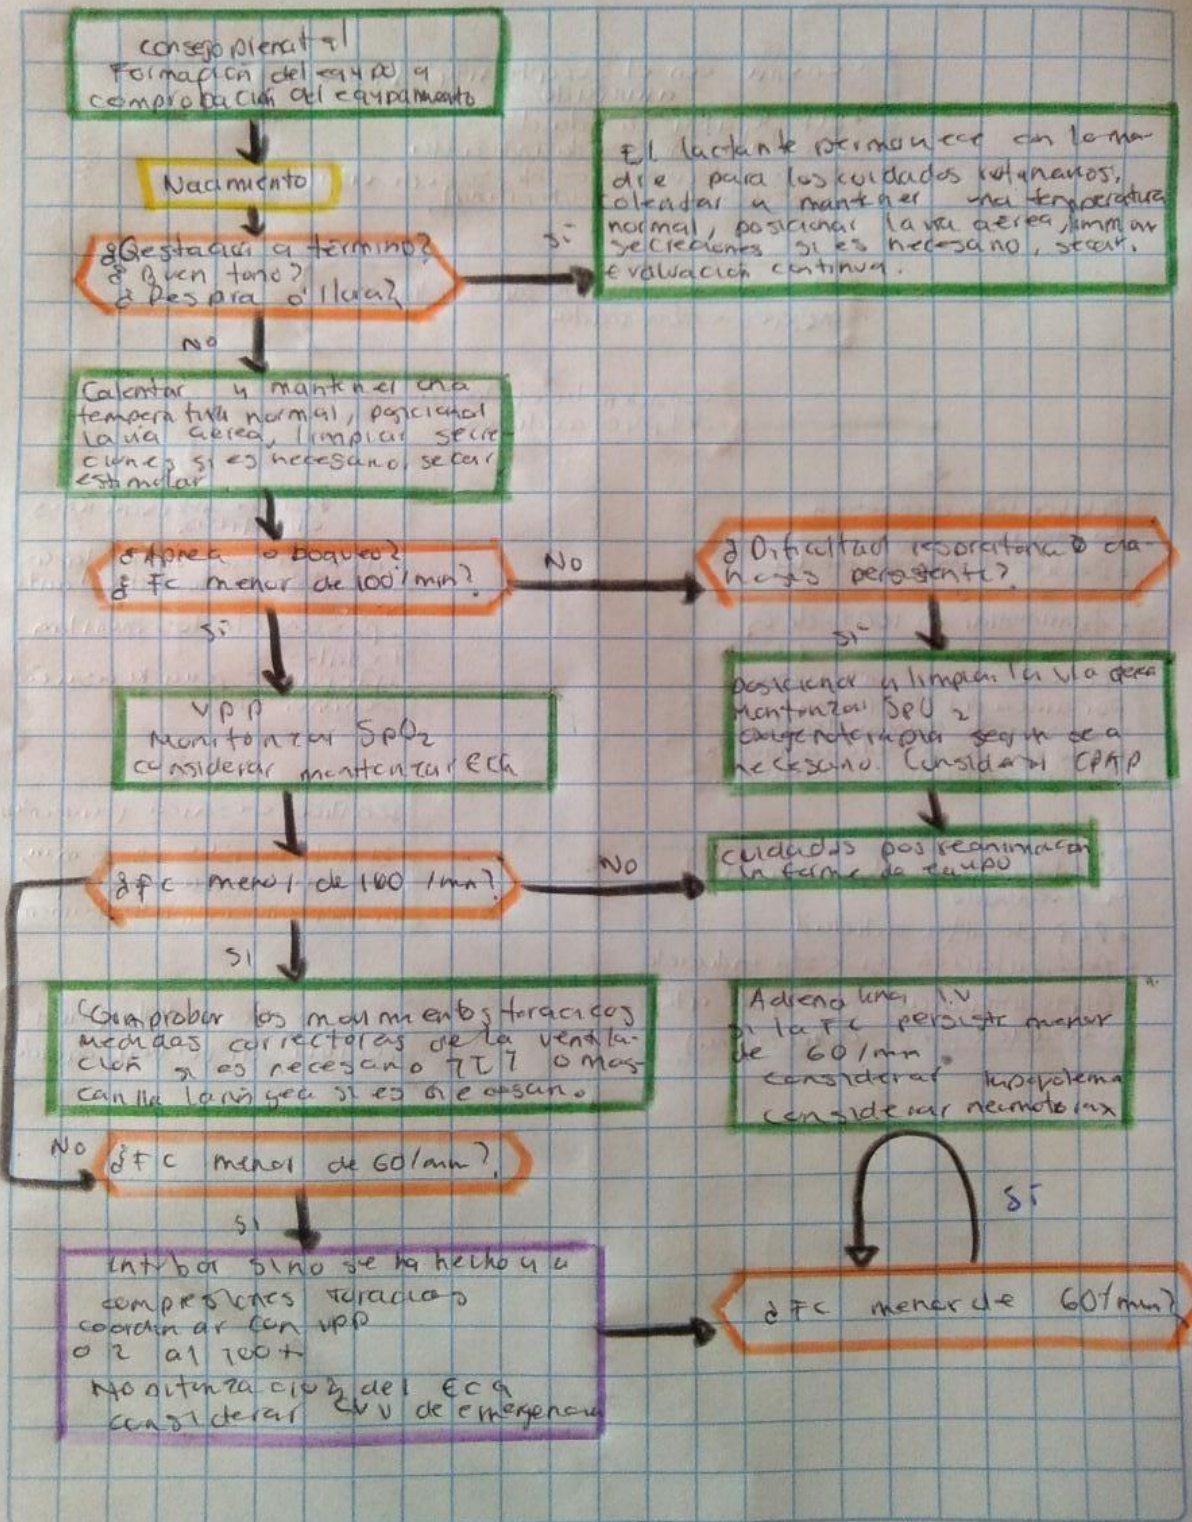 consejo prenatal
Formación del equipo y
comprobación del equipamiento
Nacimiento
¿Gestación a término?
¿Buen tono?
¿Respira o llora?
Si
El lactante permanece con la ma-
dre para los cuidados rutinarios,
calentar y mantener una temperatura
normal, posicionar la via aérea, limpiar
secreciones si es necesario, secar.
evaluación continua.
No
Calentar y mantener una
temperatura normal, posicionar
la via aérea, limpiar secre-
ciones si es necesario, secar
estimular
¿Apnea o boqueo?
¿FC menor de 100/min?
No
¿Dificultad respiratoria o cia-
nosis persistente?
Si
Si
VPP
Monitorizar SpO2
considerar monitorizar ECG
posicionar y limpiar la via aerea
Monitorizar SpO2
oxigenoterapia según sea
necesario. Considerar CPAP
¿FC menor de 100/min?
No
cuidados posreanimación
informe de equipo
Si
Comprobar los movimientos toracicos
medidas correctoras de la ventila-
ción si es necesario TET o mas-
carilla laringea si es
Adrenalina I.V
si la FC persiste menor
de 60/min.
considerar
considerar neumotorax
No
¿FC menor de 60/min?
Si
Si
Intubar si no se ha hecho ya
compresiones toracicas
coordinar con VPP
O2 al 100%
Monitorización del ECG
considerar CVU de emergencia
¿FC menor de 60/min?